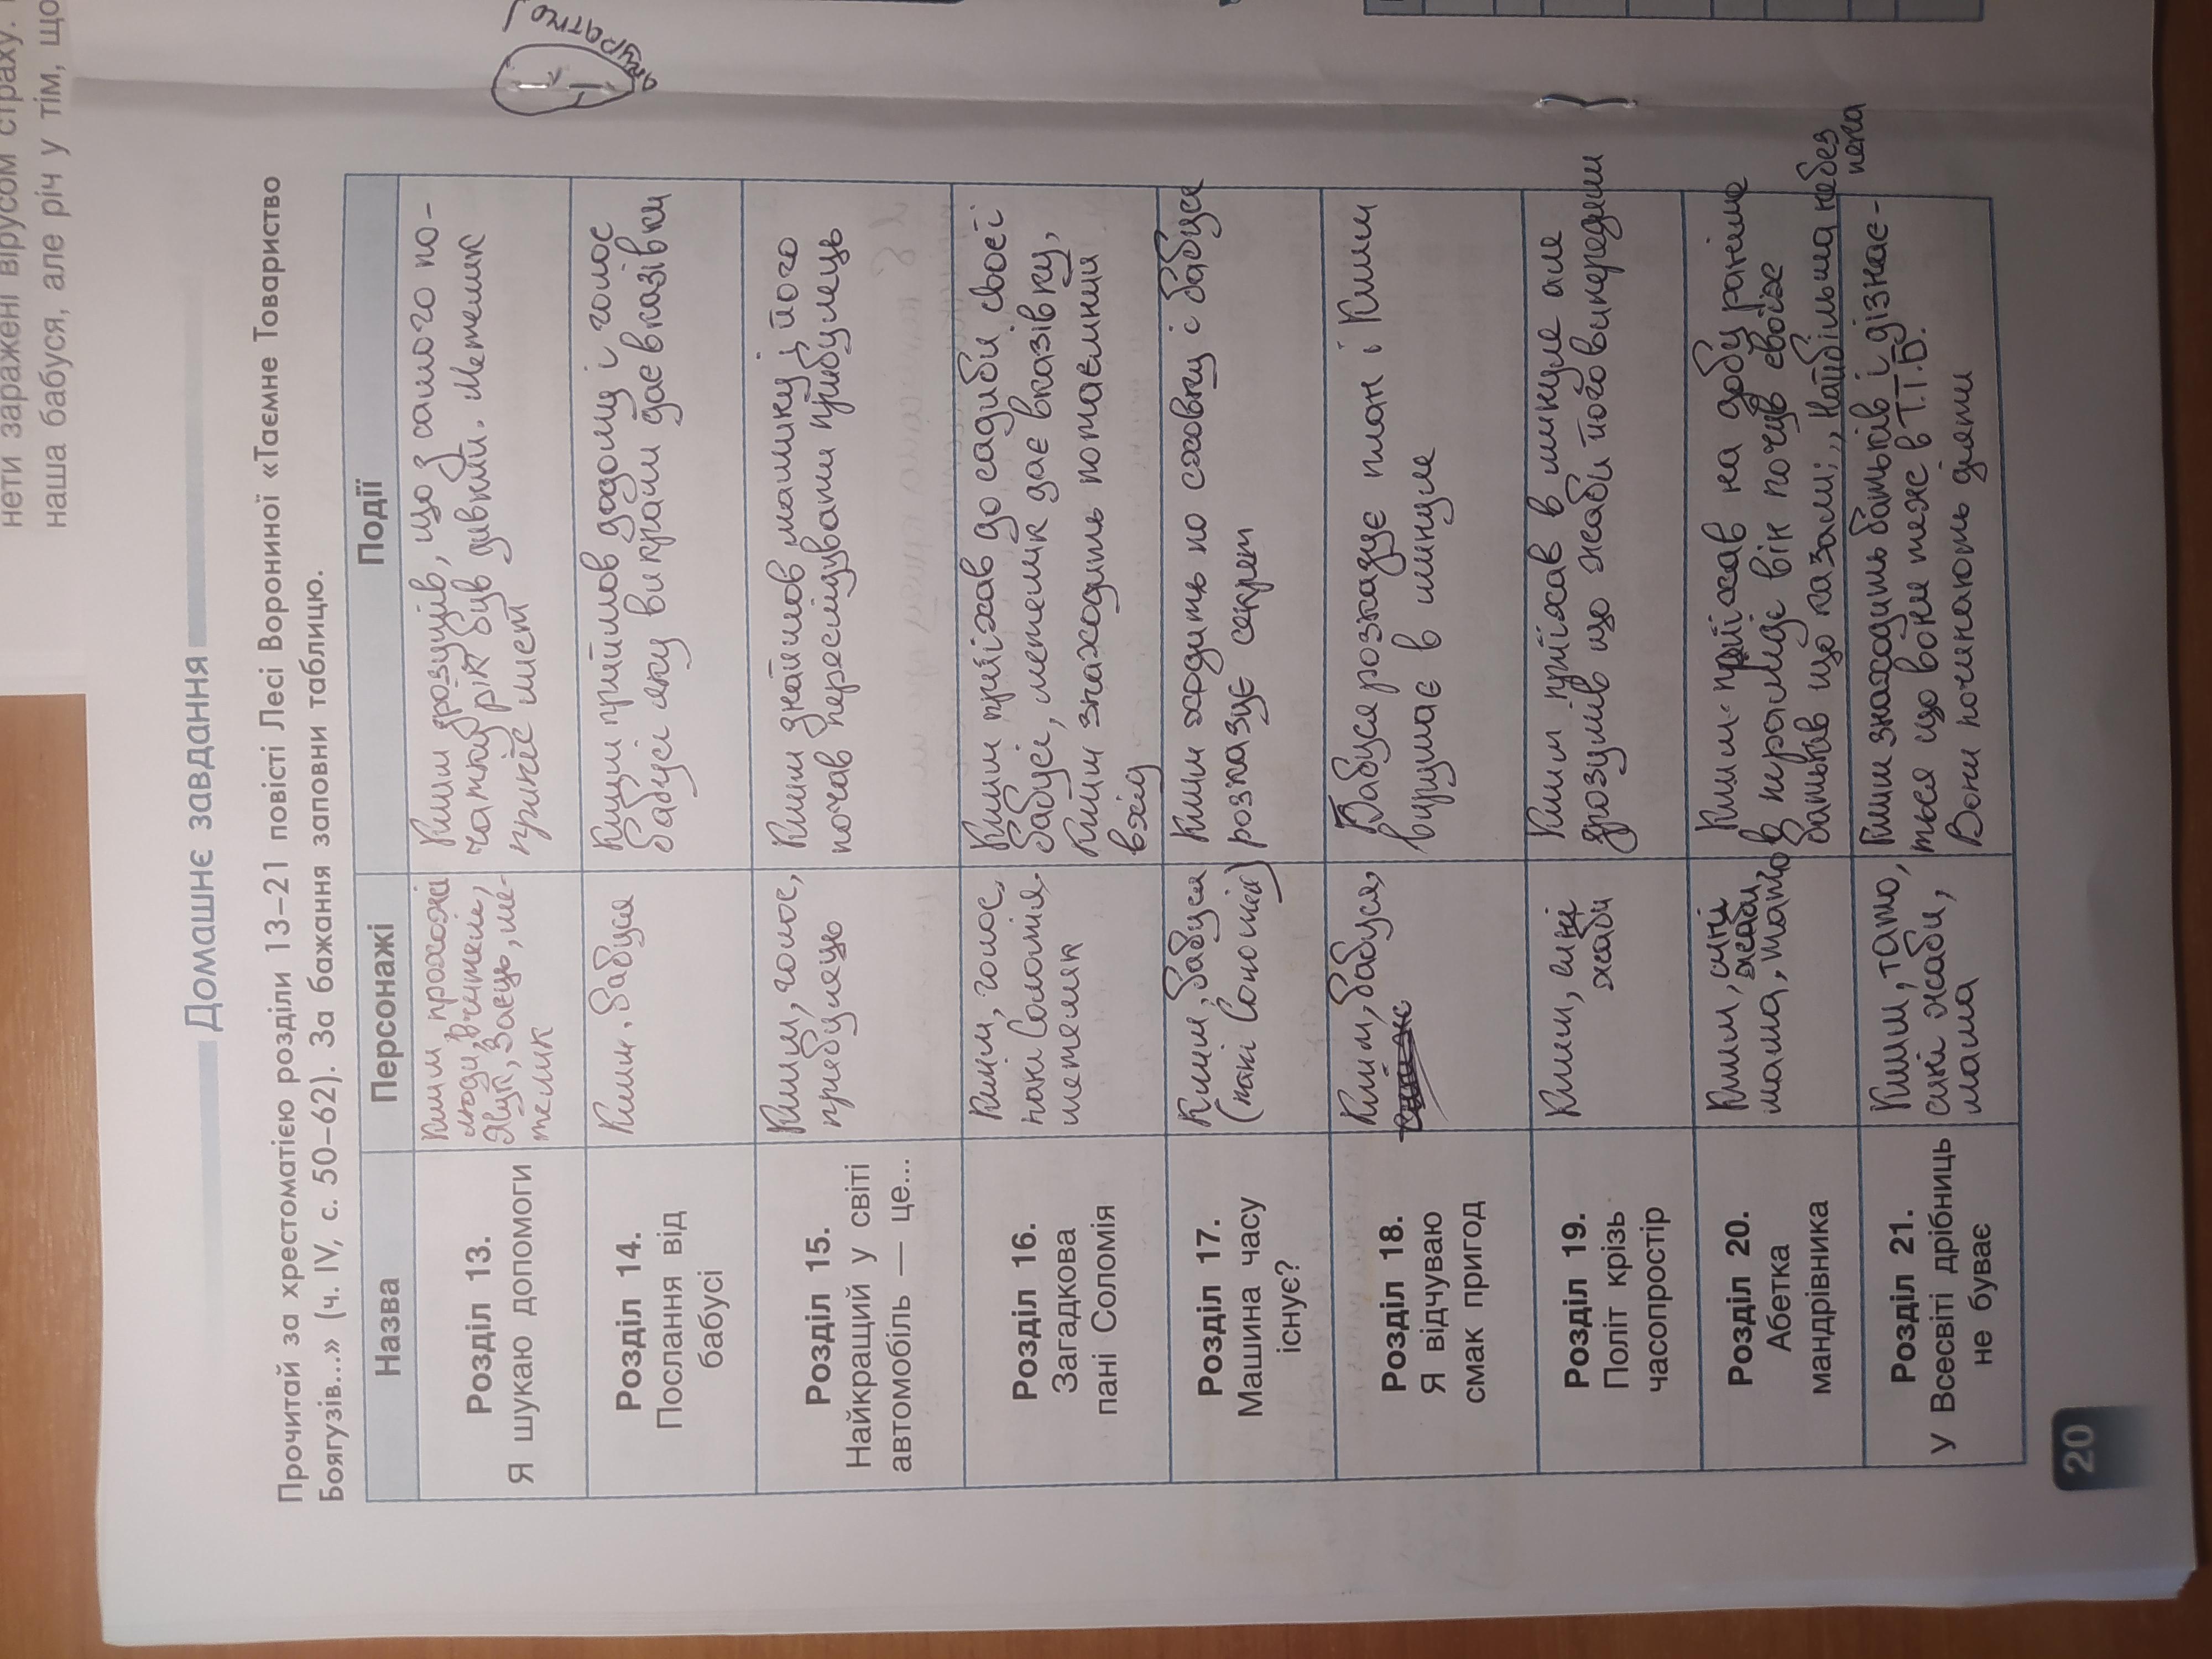 нети заражені вірусом страху.
наша бабуся, але річ у тім, що
Домашнє завдання
Прочитай за хрестоматією розділи 13–21 повісті Лесі Ворониної «Таємне Товариство
Боягузів...» (ч. IV, с. 50–62). За бажання заповни таблицю.
Назва Персонажі Події
Розділ 13.
Я шукаю допомоги
Клим прохожі
люди, вчителі,
Жук, Заєць, ме-
телик
Клим зрозумів, що з самого по-
чатку рік був дивний. Метелик
приніс лист
Розділ 14.
Послання від
бабусі
Клим, бабуся
Клим прийшов додому і голос
бабусі яку викрали дає вказівки
Розділ 15.
Найкращий у світі
автомобіль — це...
Клим, голос,
прибулець
Клим знайшов машину і його
почав переслідувати прибулець
Розділ 16.
Загадкова
пані Соломія
Клим, голос,
пані Соломія,
метелик
Клим приїхав до садиби своєї
бабусі, метелик дає вказівку,
Клим знаходить потаємний
вхід
Розділ 17.
Машина часу
існує?
Клим, бабуся
(пані Соломія)
Клим ходить по сховку і бабуся
розказує секрет
Розділ 18.
Я відчуваю
смак пригод
Клим, бабуся,
Бабуся розказує план і Клим
вирушає в минуле
Розділ 19.
Політ крізь
часопростір
Клим, сині
жаби
Клим приїхав в минуле але
зрозумів що жаби його випередили
Розділ 20.
Абетка
мандрівника
Клим, сині
жаби,
мама, тато
Клим приїхав на добу раніше
в піраміді він почув своїх
батьків що казали: „Найбільша небез
пека
Розділ 21.
У Всесвіті дрібниць
не буває
Клим, тато,
сині жаби,
мама
Клим знаходить батьків і дізнає-
ться що вони теж в Т.Т.Б.
Вони починають діяти
20